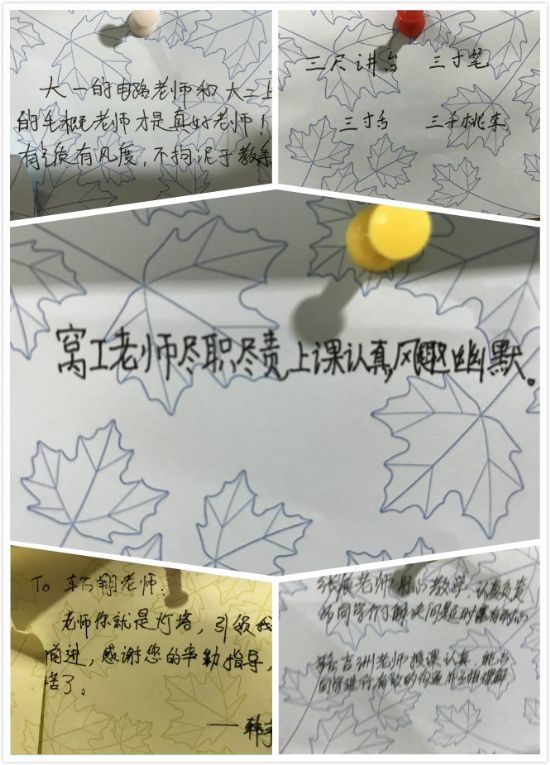 大一的电路老师和大二上
的毛概老师才是真好老师！
有气质有风度，不拘泥于教案
三尺讲台 三寸笔
三寸舌 三千桃李
窝工老师尽职尽责上课认真风趣幽默。
To 翔老师：
老师你就是灯塔，引领我
前进，感谢您的辛勤指导，
苦了。
——韩
老师用心教学，认真负责
给同学们解决问题时
老师授课认真，能与
同学进行有效的沟通并